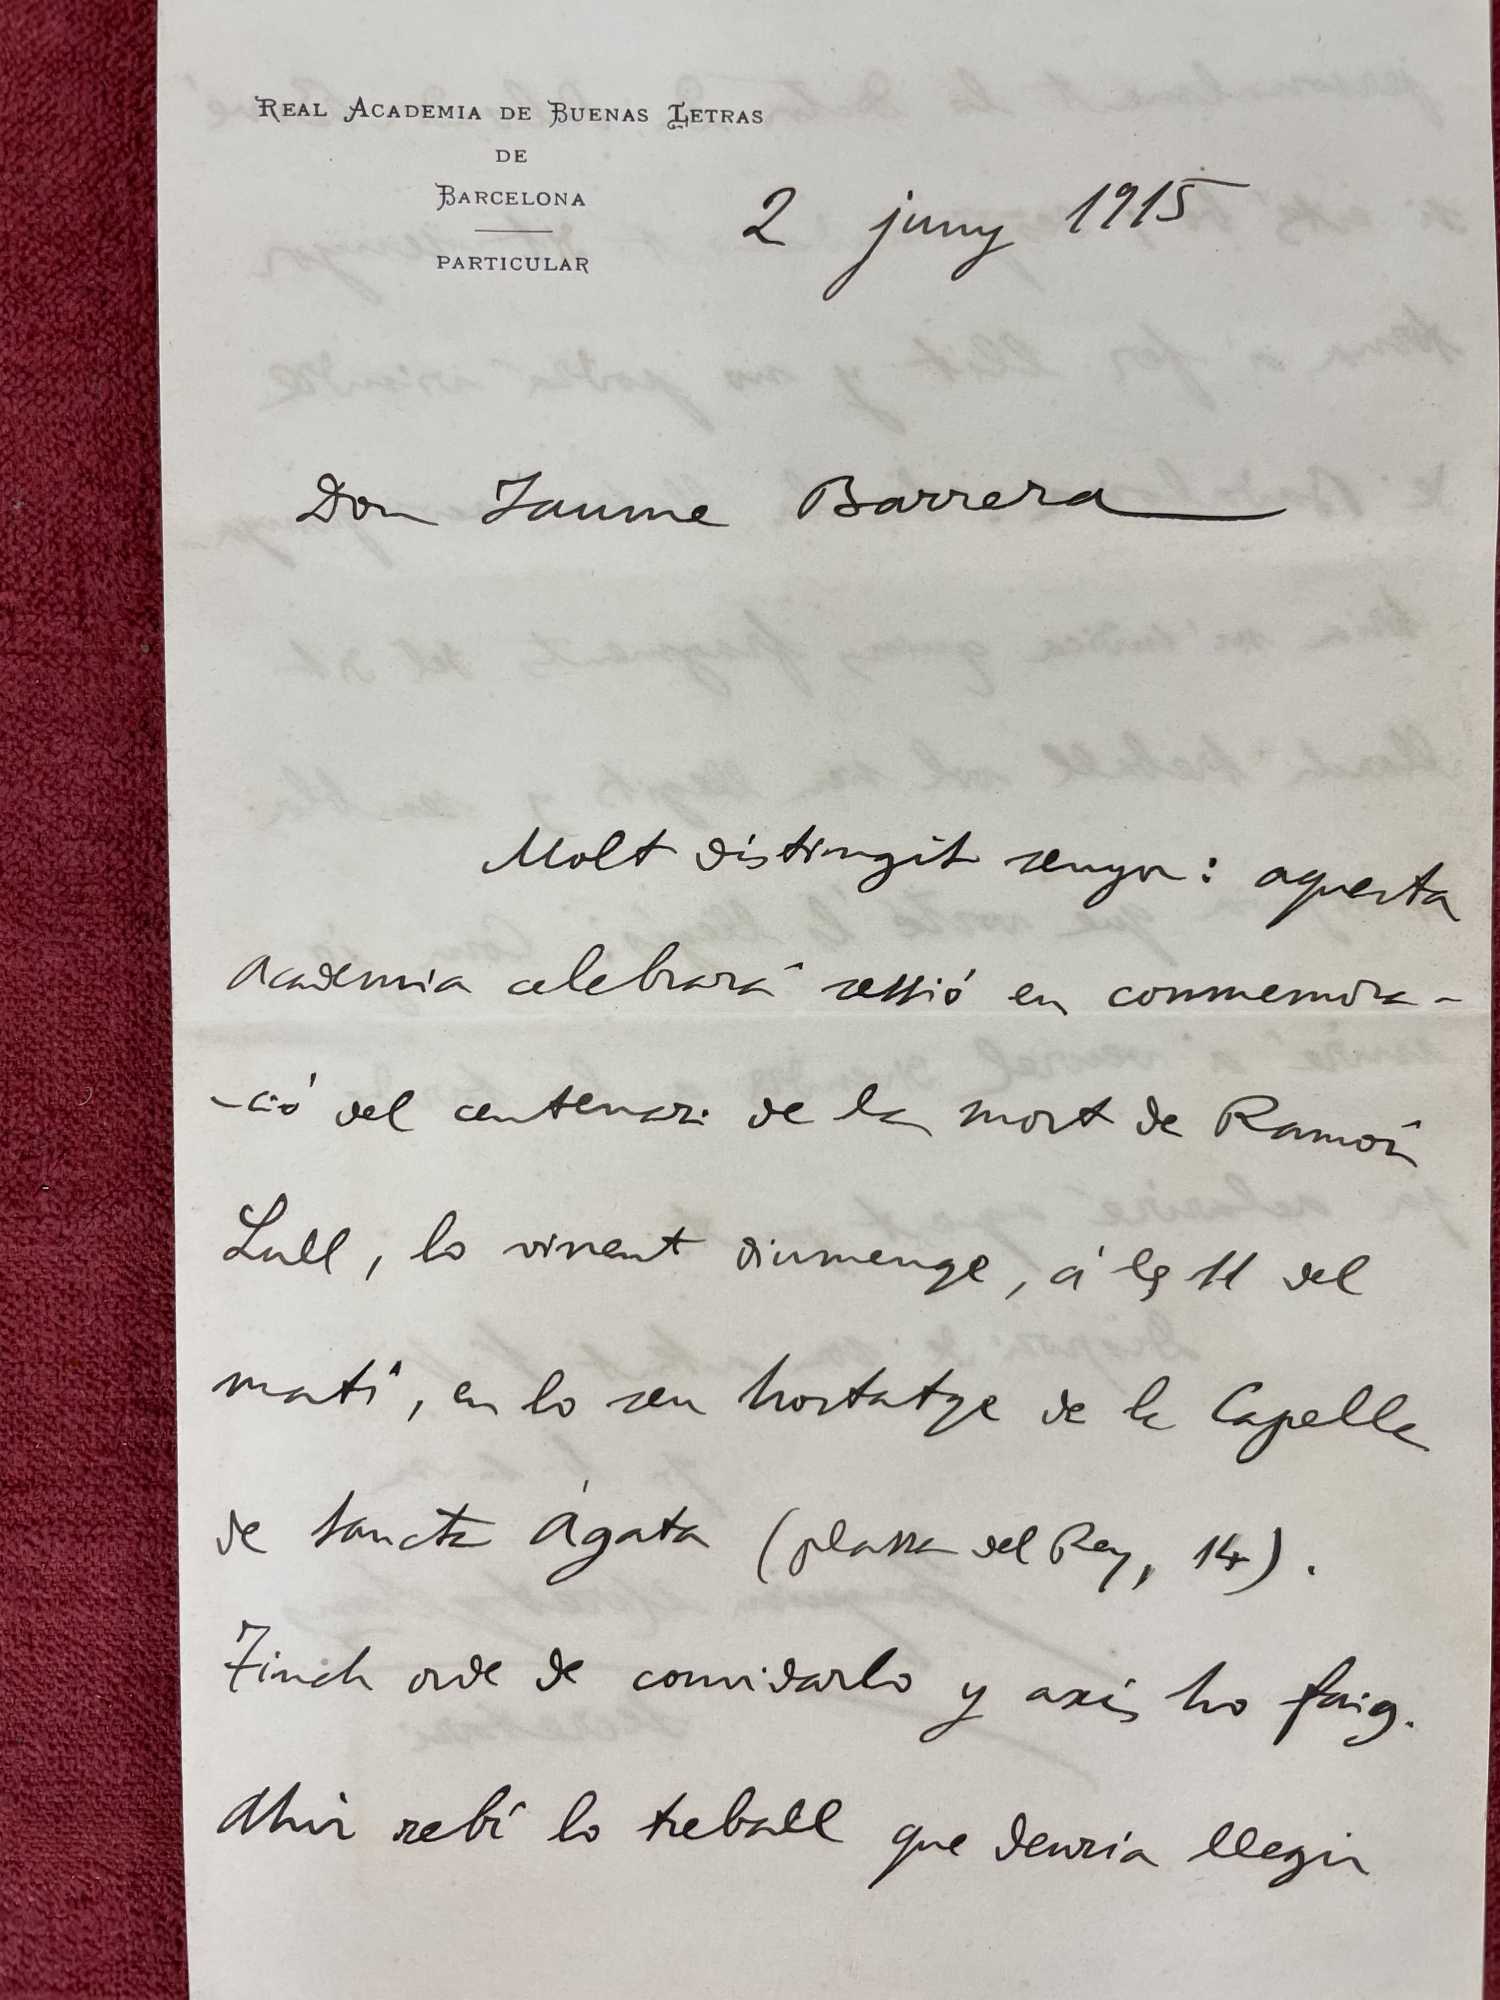 REAL ACADEMIA DE BUENAS LETRAS
DE
BARCELONA
PARTICULAR
2 juny 1915
Don Jaume Barrera
Molt distingit senyor: aquesta
Academia celebrará sessió en conmemora-
-ció del centenari de la mort de Ramón
Lull, lo vinent diumenge, á les 11 del
matí, en lo seu hostatge de la Capella
de Sancta Ágata (plassa del Rey, 14).
Tinch orde de convidarlo y axís ho faig.
Ahir rebí lo treball que deuria llegir